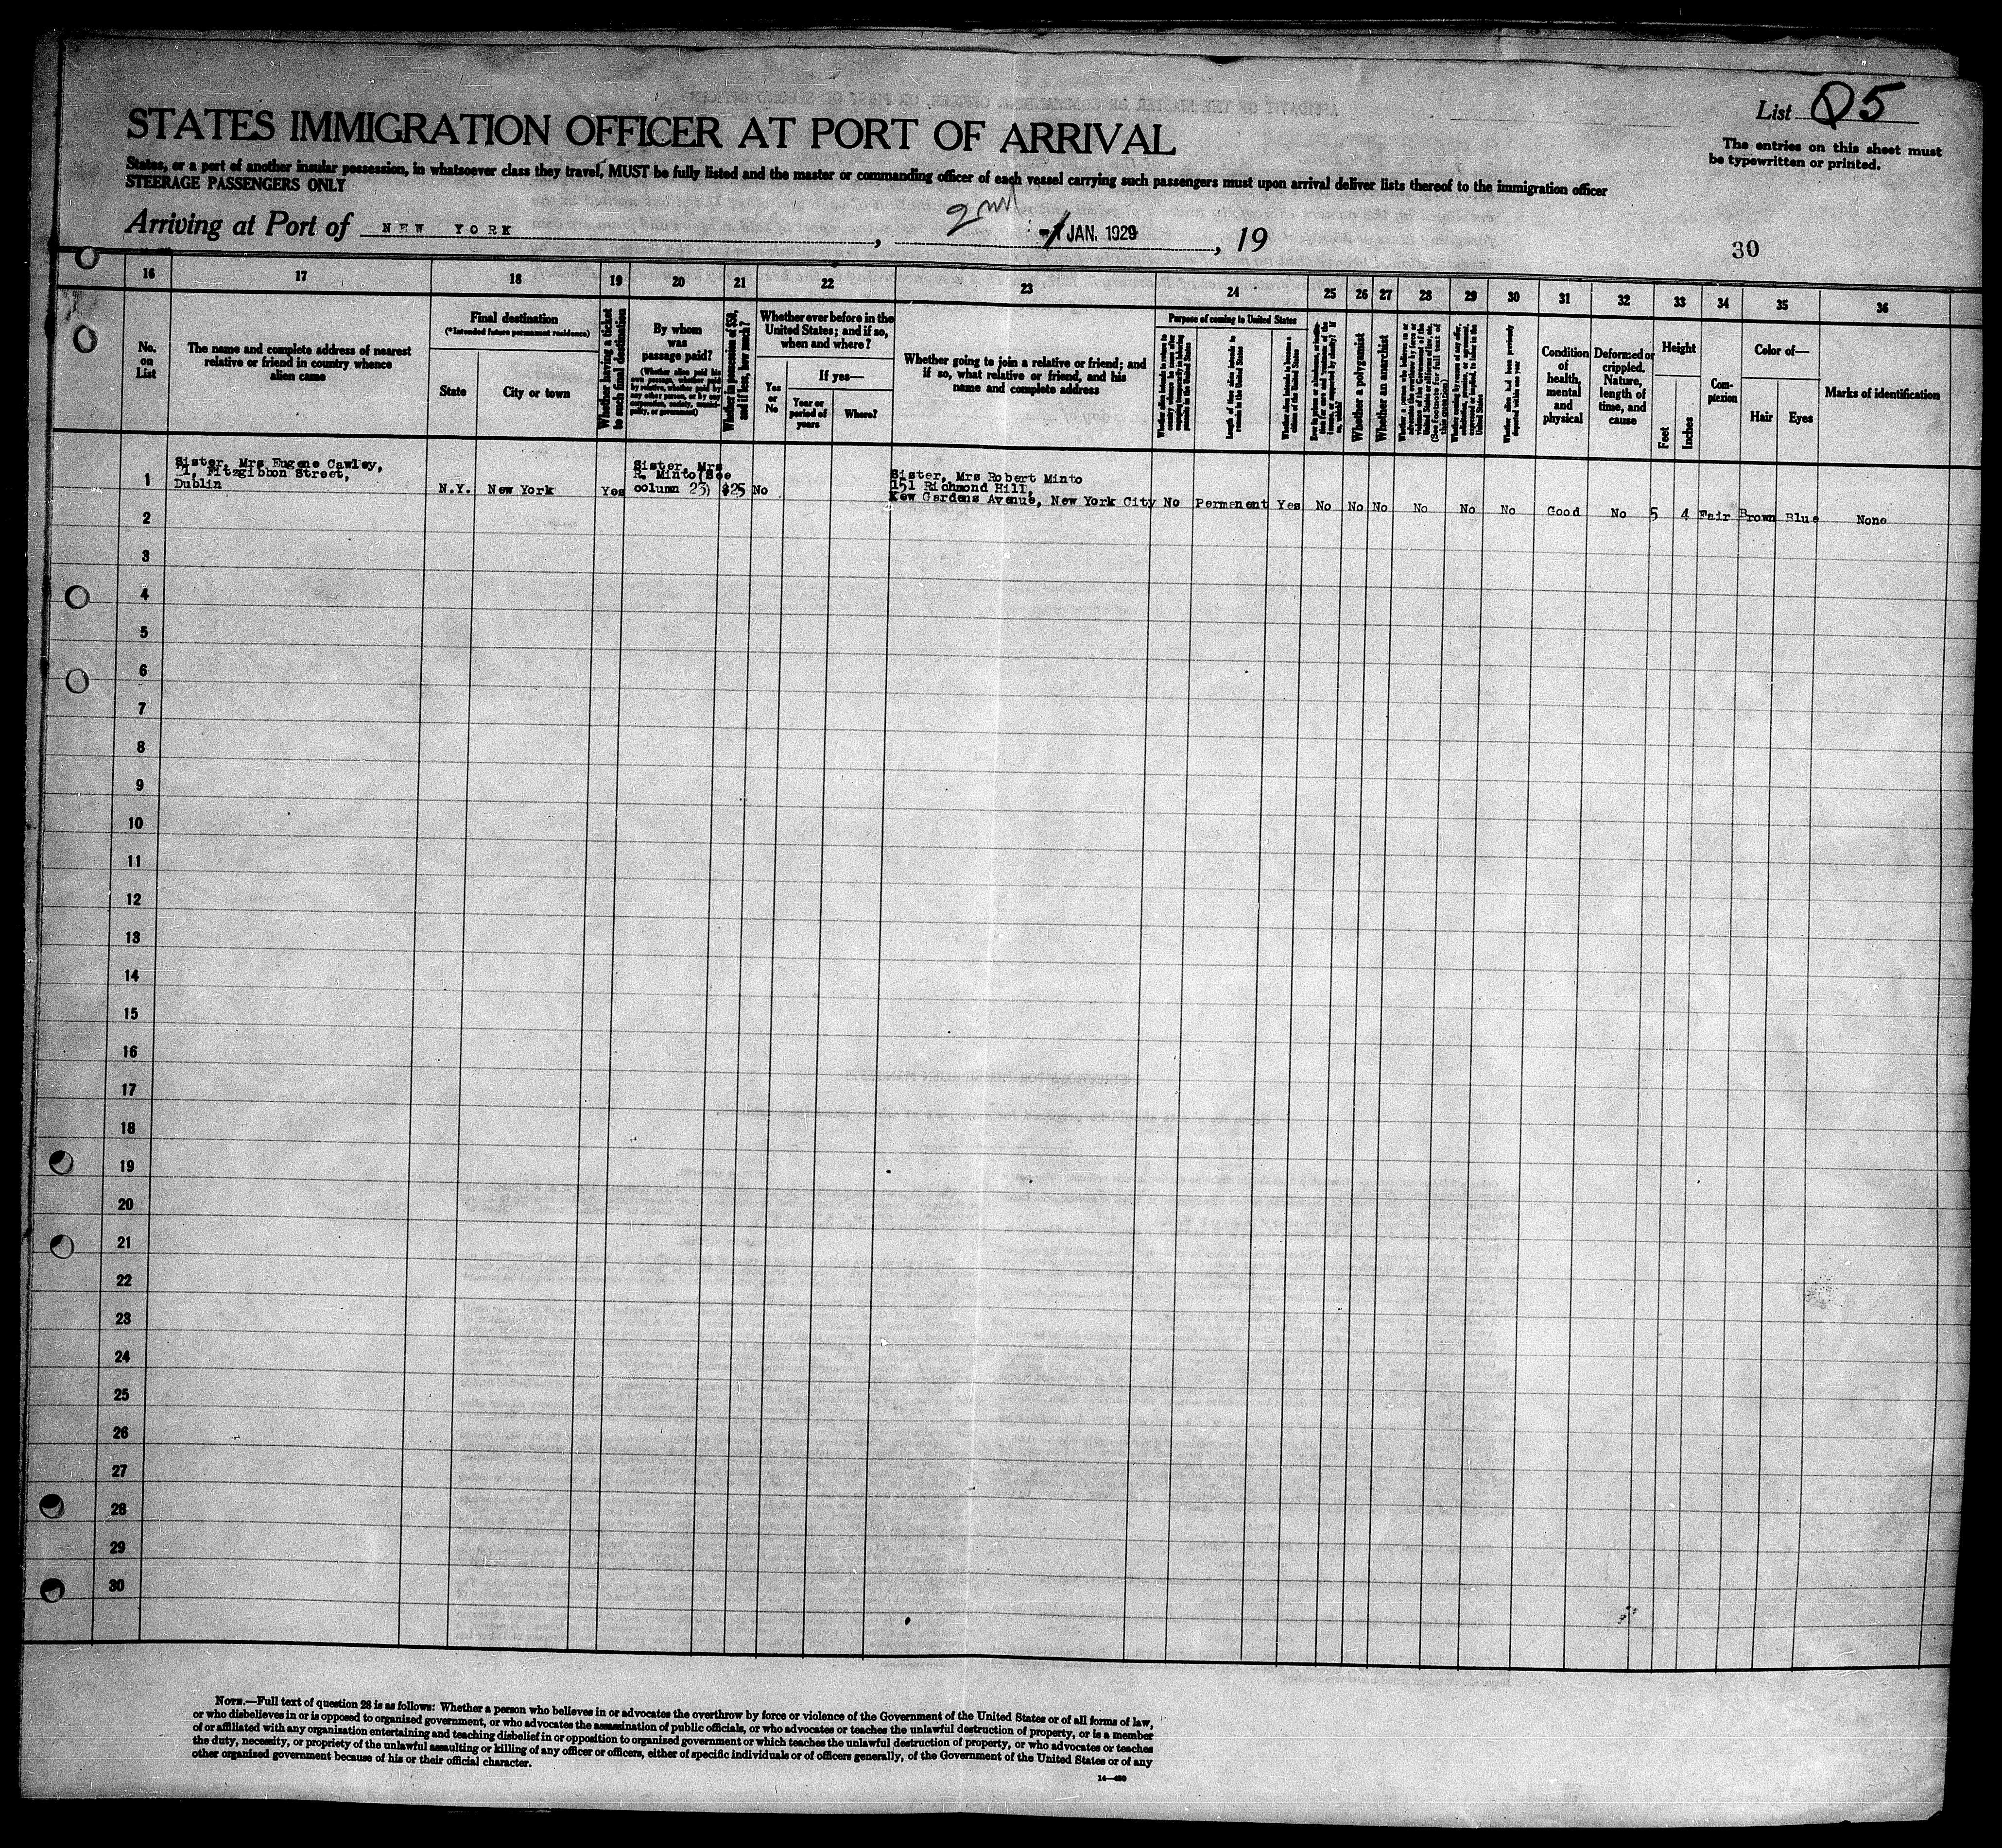 List Q5
The entries on this sheet must
be typewritten or printed.
STATES IMMIGRATION OFFICER AT PORT OF ARRIVAL
States, or a port of another insular possession, in whatsoever class they travel, MUST be fully listed and the master or commanding officer of each vessel carrying such passengers must upon arrival deliver lists thereof to the immigration officer
STEERAGE PASSENGERS ONLY
Arriving at Port of NEW YORK, 2nd 1 JAN. 1929, 19
30
16 17 18 19 20 21 22 23 24 25 26 27 28 29 30 31 32 33 34 35 36
No.
on
List
The name and complete address of nearest
relative or friend in country whence
alien came
Final destination
(*Intended future permanent residence)
State
City or town
Whether having a ticket
to such final destination
By whom
was
passage paid?
(Whether alien paid his
own passage, whether paid
by relative, whether paid by
any other person, or by any
corporation, society, munici-
pality, or government)
Whether in possession of $50,
and if less, how much?
Whether ever before in the
United States; and if so,
when and where?
Yes
or
No
If yes—
Year or
period of
years
Where?
Whether going to join a relative or friend; and
if so, what relative or friend, and his
name and complete address
Purpose of coming to United States
Length of time alien intends to
remain in the United States
Whether alien intends to become a
citizen of the United States
Whether a polygamist
Whether an anarchist
Whether alien had been previously
deported within one year
Condition
of
health,
mental
and
physical
Deformed or
crippled.
Nature,
length of
time, and
cause
Height
Feet
Inches
Com-
plexion
Color of—
Hair
Eyes
Marks of identification
1
Sister, Mrs Eugene Cawley,
Fitzgibbon Street,
Dublin
N.Y. New York Yes
Sister, Mrs
R. Minto (See
column 23)
$25 No
Sister, Mrs Robert Minto
151 Richmond Hill,
Kew Gardens Avenue, New York City
No Permanent Yes No No No No No No Good No 5 4 Fair Brown Blue None
2
3
4
5
6
7
8
9
10
11
12
13
14
15
16
17
18
19
20
21
22
23
24
25
26
27
28
29
30
NOTE.—Full text of question 28 is as follows: Whether a person who believes in or advocates the overthrow by force or violence of the Government of the United States or of all forms of law,
or who disbelieves in or is opposed to organized government, or who advocates the assassination of public officials, or who advocates or teaches the unlawful destruction of property, or is a member
of or affiliated with any organization entertaining and teaching disbelief in or opposition to organized government or which teaches the unlawful destruction of property, or who advocates or teaches
the duty, necessity, or propriety of the unlawful assaulting or killing of any officer or officers, either of specific individuals or of officers generally, of the Government of the United States or of any
other organized government because of his or their official character.